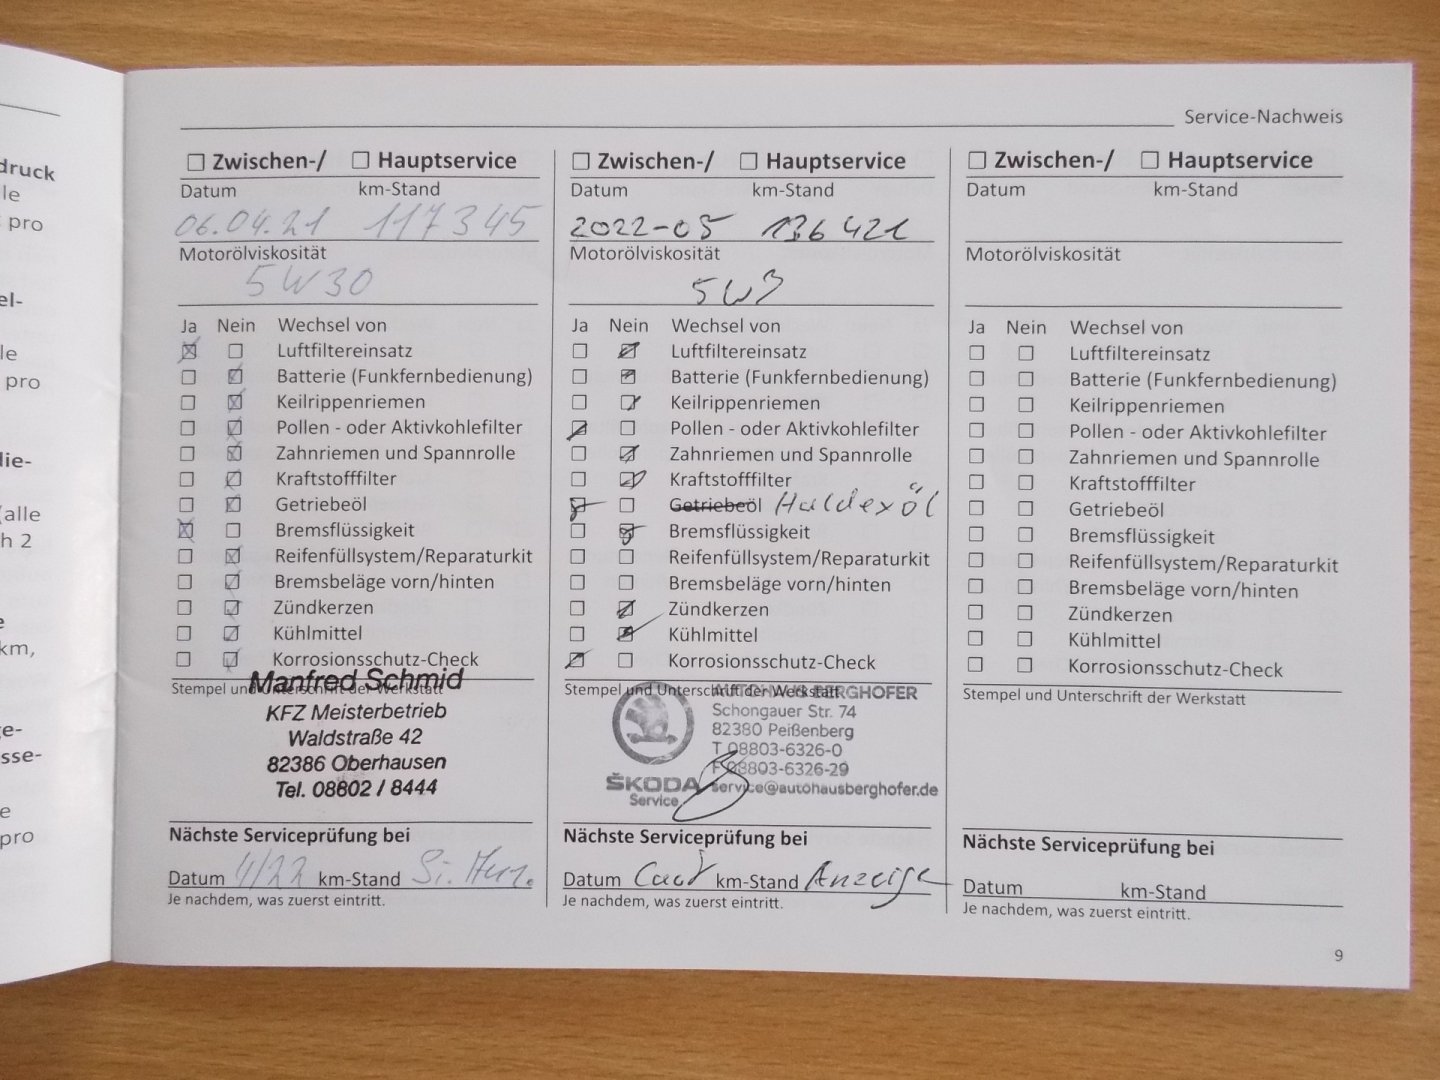 druck
le
pro
el-
le
pro
die-
(alle
h 2
e
km,
ge-
sse-
e
pro
Service-Nachweis
Zwischen-/ Hauptservice
Datum km-Stand
06.04.21 117345
Motorölviskosität
5W30
Ja Nein Wechsel von
Luftfiltereinsatz
Batterie (Funkfernbedienung)
Keilrippenriemen
Pollen - oder Aktivkohlefilter
Zahnriemen und Spannrolle
Kraftstofffilter
Getriebeöl
Bremsflüssigkeit
Reifenfüllsystem/Reparaturkit
Bremsbeläge vorn/hinten
Zündkerzen
Kühlmittel
Korrosionsschutz-Check
Stempel und Unterschrift der Werkstatt
Manfred Schmid
KFZ Meisterbetrieb
Waldstraße 42
82386 Oberhausen
Tel. 08802 / 8444
Nächste Serviceprüfung bei
Datum 4/22 km-Stand
Je nachdem, was zuerst eintritt.
Zwischen-/ Hauptservice
Datum km-Stand
2022-05 136421
Motorölviskosität
5W3
Ja Nein Wechsel von
Luftfiltereinsatz
Batterie (Funkfernbedienung)
Keilrippenriemen
Pollen - oder Aktivkohlefilter
Zahnriemen und Spannrolle
Kraftstofffilter
Getriebeöl Haldexöl
Bremsflüssigkeit
Reifenfüllsystem/Reparaturkit
Bremsbeläge vorn/hinten
Zündkerzen
Kühlmittel
Korrosionsschutz-Check
Stempel und Unterschrift der Werkstatt
AUTOHAUS BERGHOFER
Schongauer Str. 74
82380 Peißenberg
T 08803-6326-0
F 08803-6326-29
service@autohausberghofer.de
ŠKODA
Service
Nächste Serviceprüfung bei
Datum Laut km-Stand Anzeige
Je nachdem, was zuerst eintritt.
Zwischen-/ Hauptservice
Datum km-Stand
Motorölviskosität
Ja Nein Wechsel von
Luftfiltereinsatz
Batterie (Funkfernbedienung)
Keilrippenriemen
Pollen - oder Aktivkohlefilter
Zahnriemen und Spannrolle
Kraftstofffilter
Getriebeöl
Bremsflüssigkeit
Reifenfüllsystem/Reparaturkit
Bremsbeläge vorn/hinten
Zündkerzen
Kühlmittel
Korrosionsschutz-Check
Stempel und Unterschrift der Werkstatt
Nächste Serviceprüfung bei
Datum km-Stand
Je nachdem, was zuerst eintritt.
9